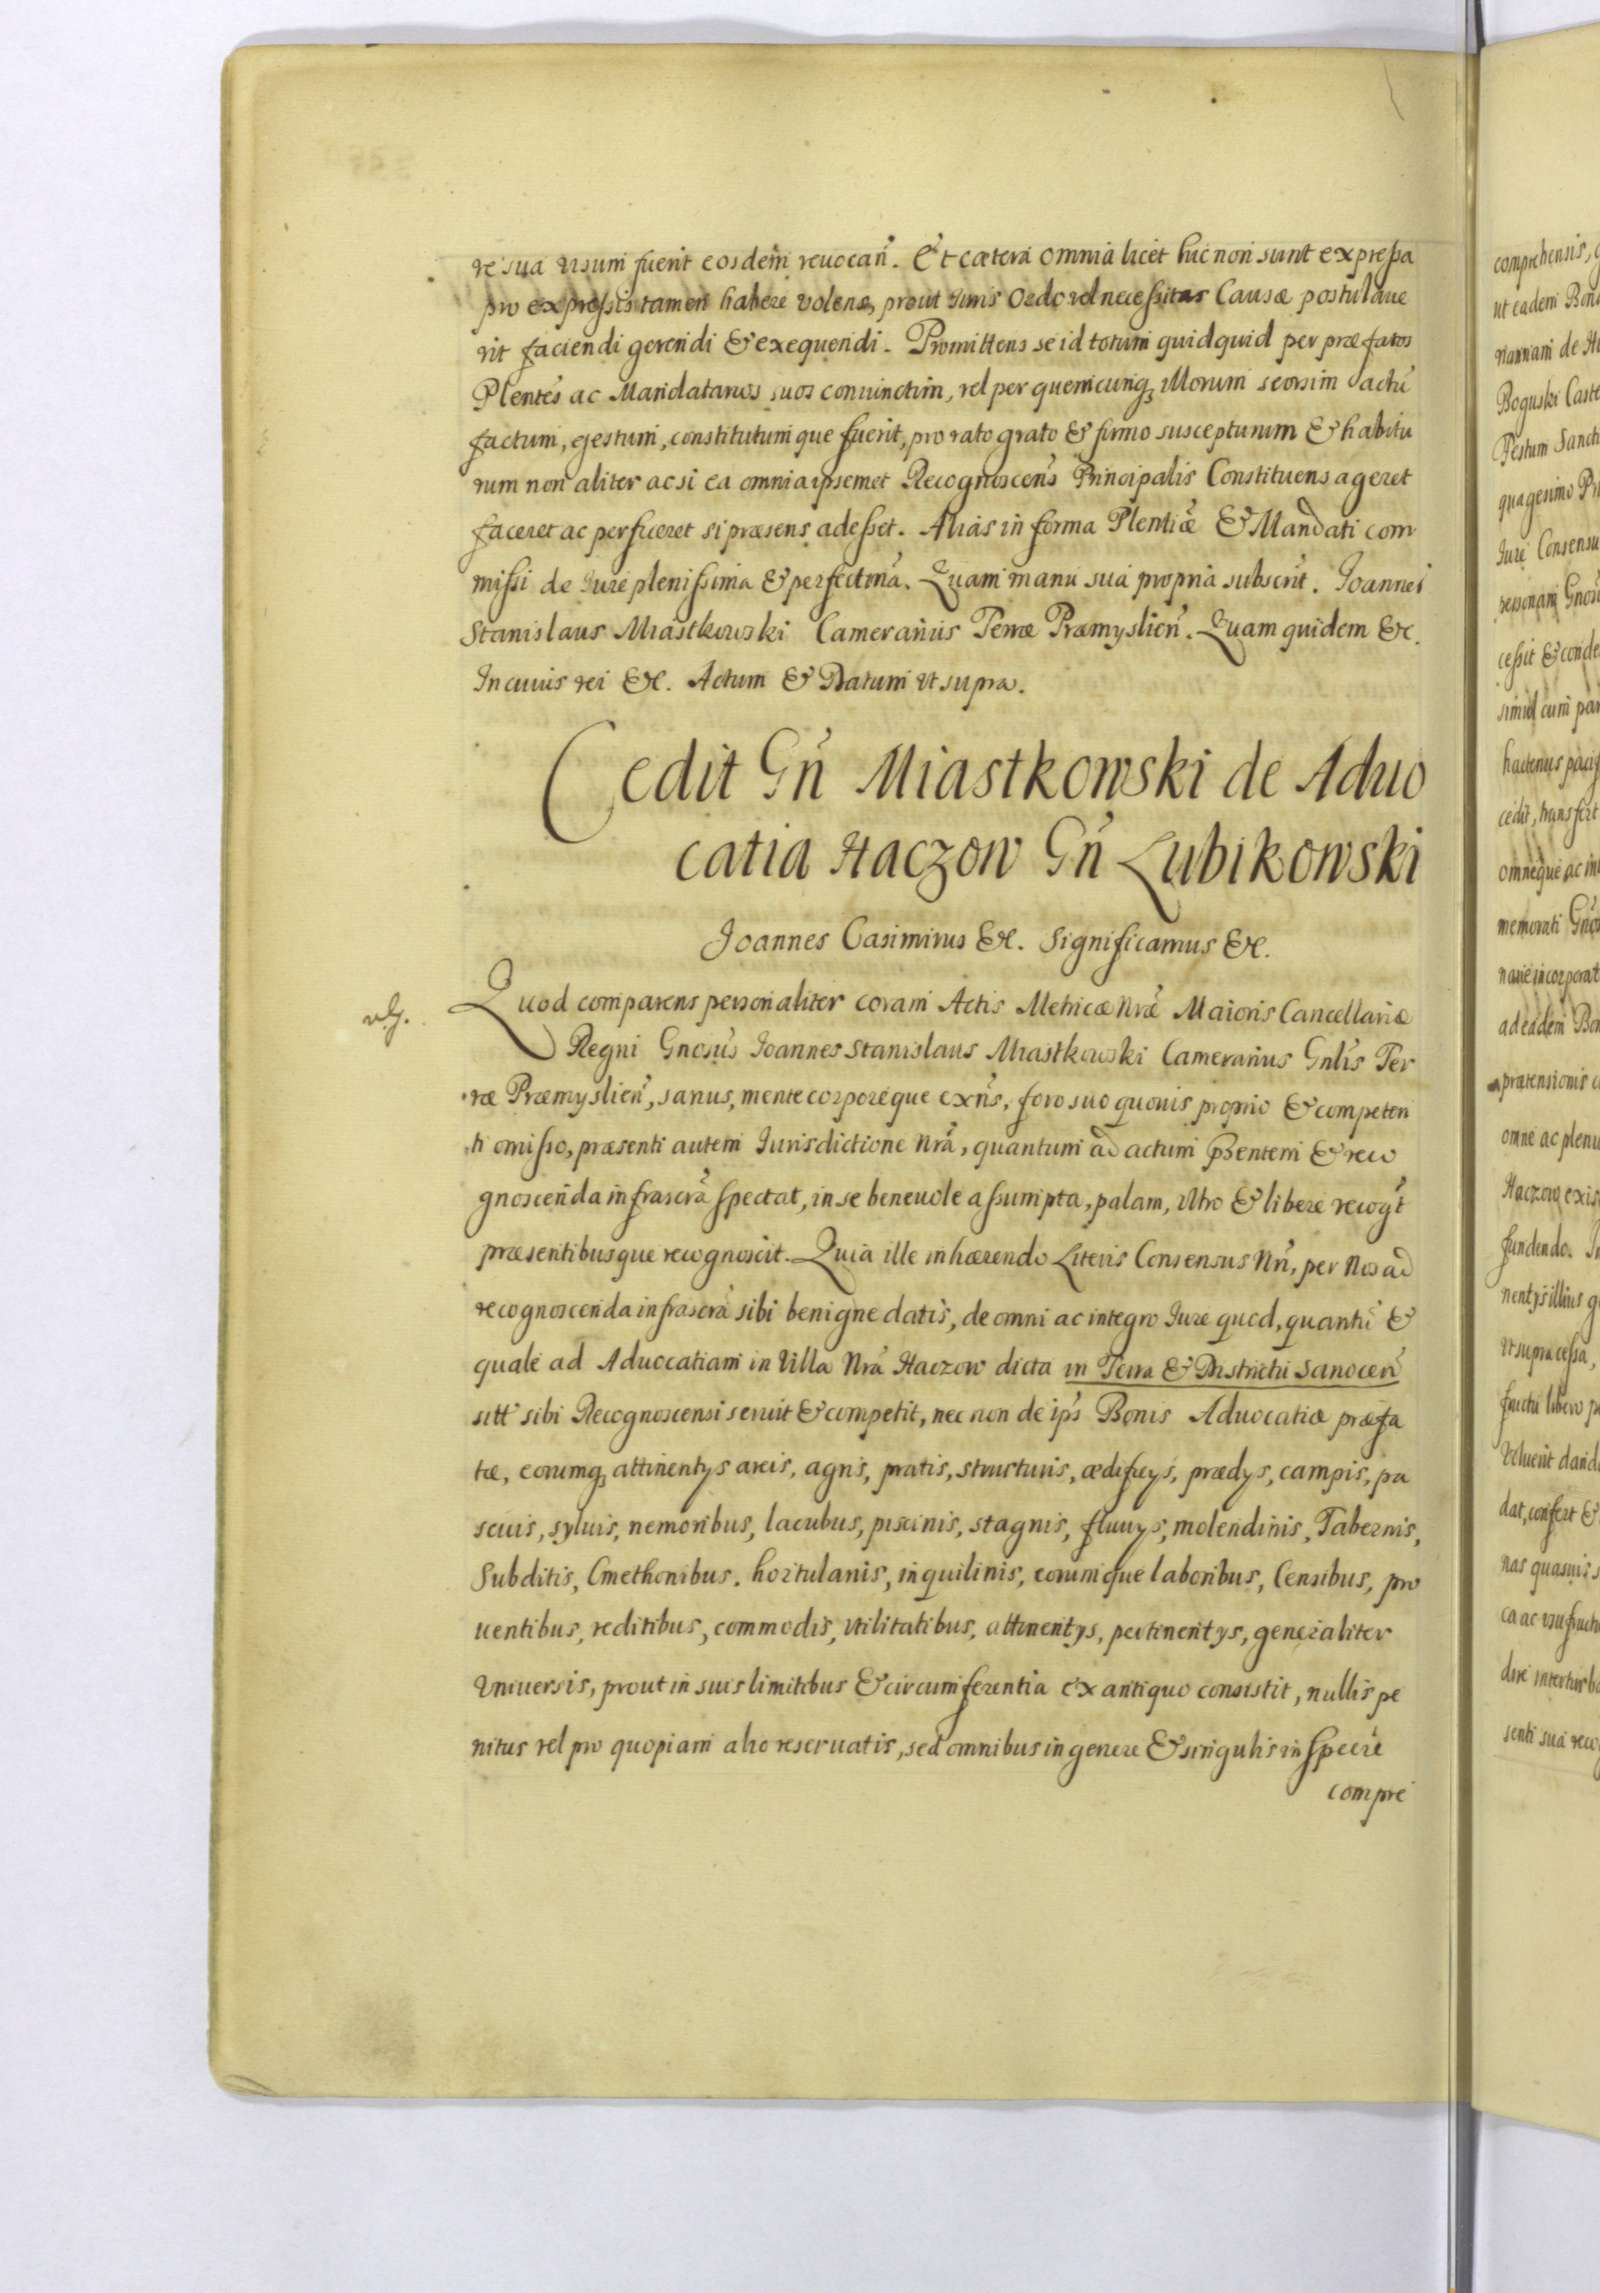 re sua visum fuerit eosdem reuocan̄. Et cætera omnia licet hic non sunt expressa
pro expressis tamen habere volens, prout Iuris Ordo vel necessitas Causæ postulaue
rit faciendi gerendi & exequendi. Promittens se id totum quidquid per præfatos
Plentēs ac Mandatarios suos coniunctim, vel per quemcunq; illorum seorsim actū
factum, gestum, constitutumque fuerit, pro rato grato & firmo suscepturum & habitu
rum non aliter ac si ea omnia ipsemet Recognoscens Principalis Constituens ageret
faceret ac perficeret si præsens adesset. Alias in forma Plentiæ & Mandati com
missi de Iure plenissima & perfectiōa. Quam manu sua propria subscrit. Joannes
Stanislaus Miastkowski Camerarius Terræ Præmyslien̄. Quam quidem &c.
In cuius rei &c. Actum & Datum vt supra.
Cedit Gn̄ Miastkowski de Aduo
catia Haczow Gn̄ Lubikowski
Joannes Casimirus &c. Significamus &c.
Quod comparens personaliter coram Actis Metricæ Nrǣ Maioris Cancellariæ
Regni Gnosus Joannes Stanislaus Miastkowski Camerarius Gnlis Ter
ræ Præmyslien̄, sanus, mente corporeque exn̄s, foro suo quouis proprio & competen
ti omisso, præsenti autem Iurisdictione Nrā, quantum ad actum Psentem & reco
gnoscenda infrascrā spectat, in se beneuole assumpta, palam, vltro & libere recogt
præsentibusque recognoscit. Quia ille inhærendo Literis Consensus Nrī, per Nos ad
recognoscenda infrascrā sibi benigne datis, de omni ac integro Iure quod, quantū &
quale ad Aduocatiam in Villa Nrā Haczow dicta in Terra & Districtu Sanocen̄
sitt sibi Recognoscensi seruit & competit, nec non de ipīs Bonis Aduocatiæ præfa
tæ, eorumq; attinentys areis, agris, pratis, structuris, ædificys, prædys, campis, pa
scuis, syluis, nemoribus, lacubus, piscinis, stagnis, fluuys, molendinis, Tabernis,
Subditis, Cmethonibus. hortulanis, inquilinis, eorumque laboribus, Censibus, pro
uentibus, reditibus, commodis, vtilitatibus, attinentys, pertinentys, generaliter
Vniuersis, prout in suis limitibus & circumferentia ex antiquo consistit, nullis pe
nitus vel pro quopiam alio reseruatis, sed omnibus in genere & singulis in specie
compre
comprehensis,
ut eadem Bon
Boguski Caste
Festum Sancti
quagesimo Pri
Iure Consensu
personam Gnos
cessit & conde
simul cum par
hactenus pacif
cedit, transfert
omneque ac int
memorati Gnos
narie incorporat
ad eadem Bon
prætensionis
omne ac plenu
Haczow exis
fundendo. In
nentys illius g
Vt supra cessa,
fructu libero p
Voluerit dand
dat, confert &
nas quasuis s
ca ac vsufructu
senti sua reco